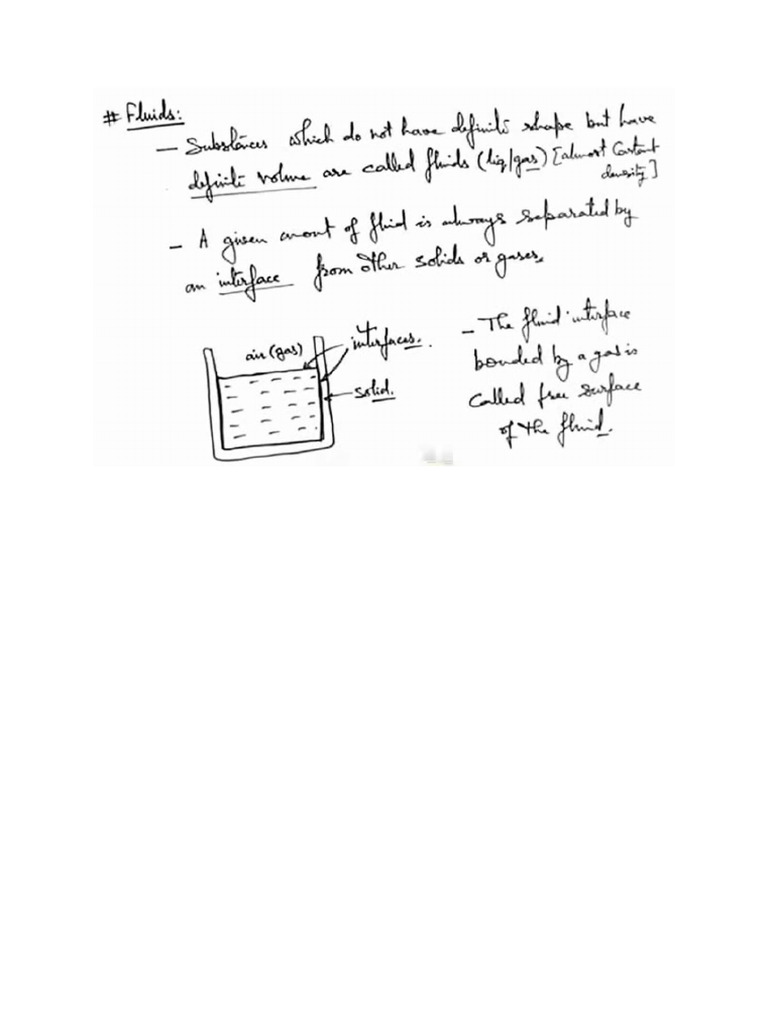 # Fluids:
— Substances which do not have definite shape but have
definite volume are called fluids (liq/gas) [almost Constant
density]
— A given amount of fluid is always separated by
an interface from other solids or gases.
air (gas)
interfaces.
solid.
— The fluid interface
bonded by a gas is
Called free surface
of the fluid.